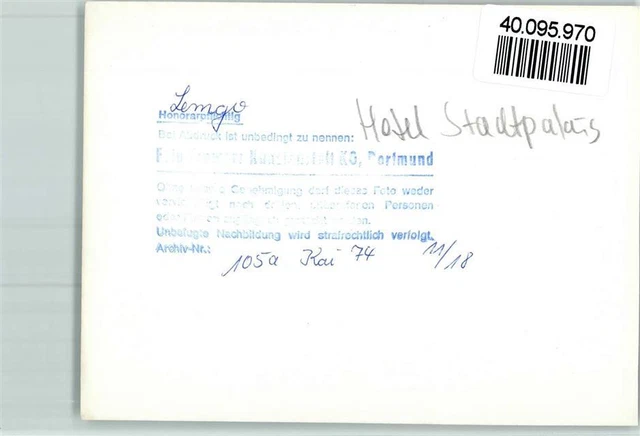 40.095.970
Lemgo
Honorarpflichtig
Hotel Stadtpalais
Bei Abdruck ist unbedingt zu nennen:
Foto Kunstanstalt KG, Dortmund
Ohne Genehmigung darf dieses Foto weder
noch dritten, Personen
werden.
Unbefugte Nachbildung wird strafrechtlich verfolgt.
Archiv-Nr.:
105a Kai 74 11/18